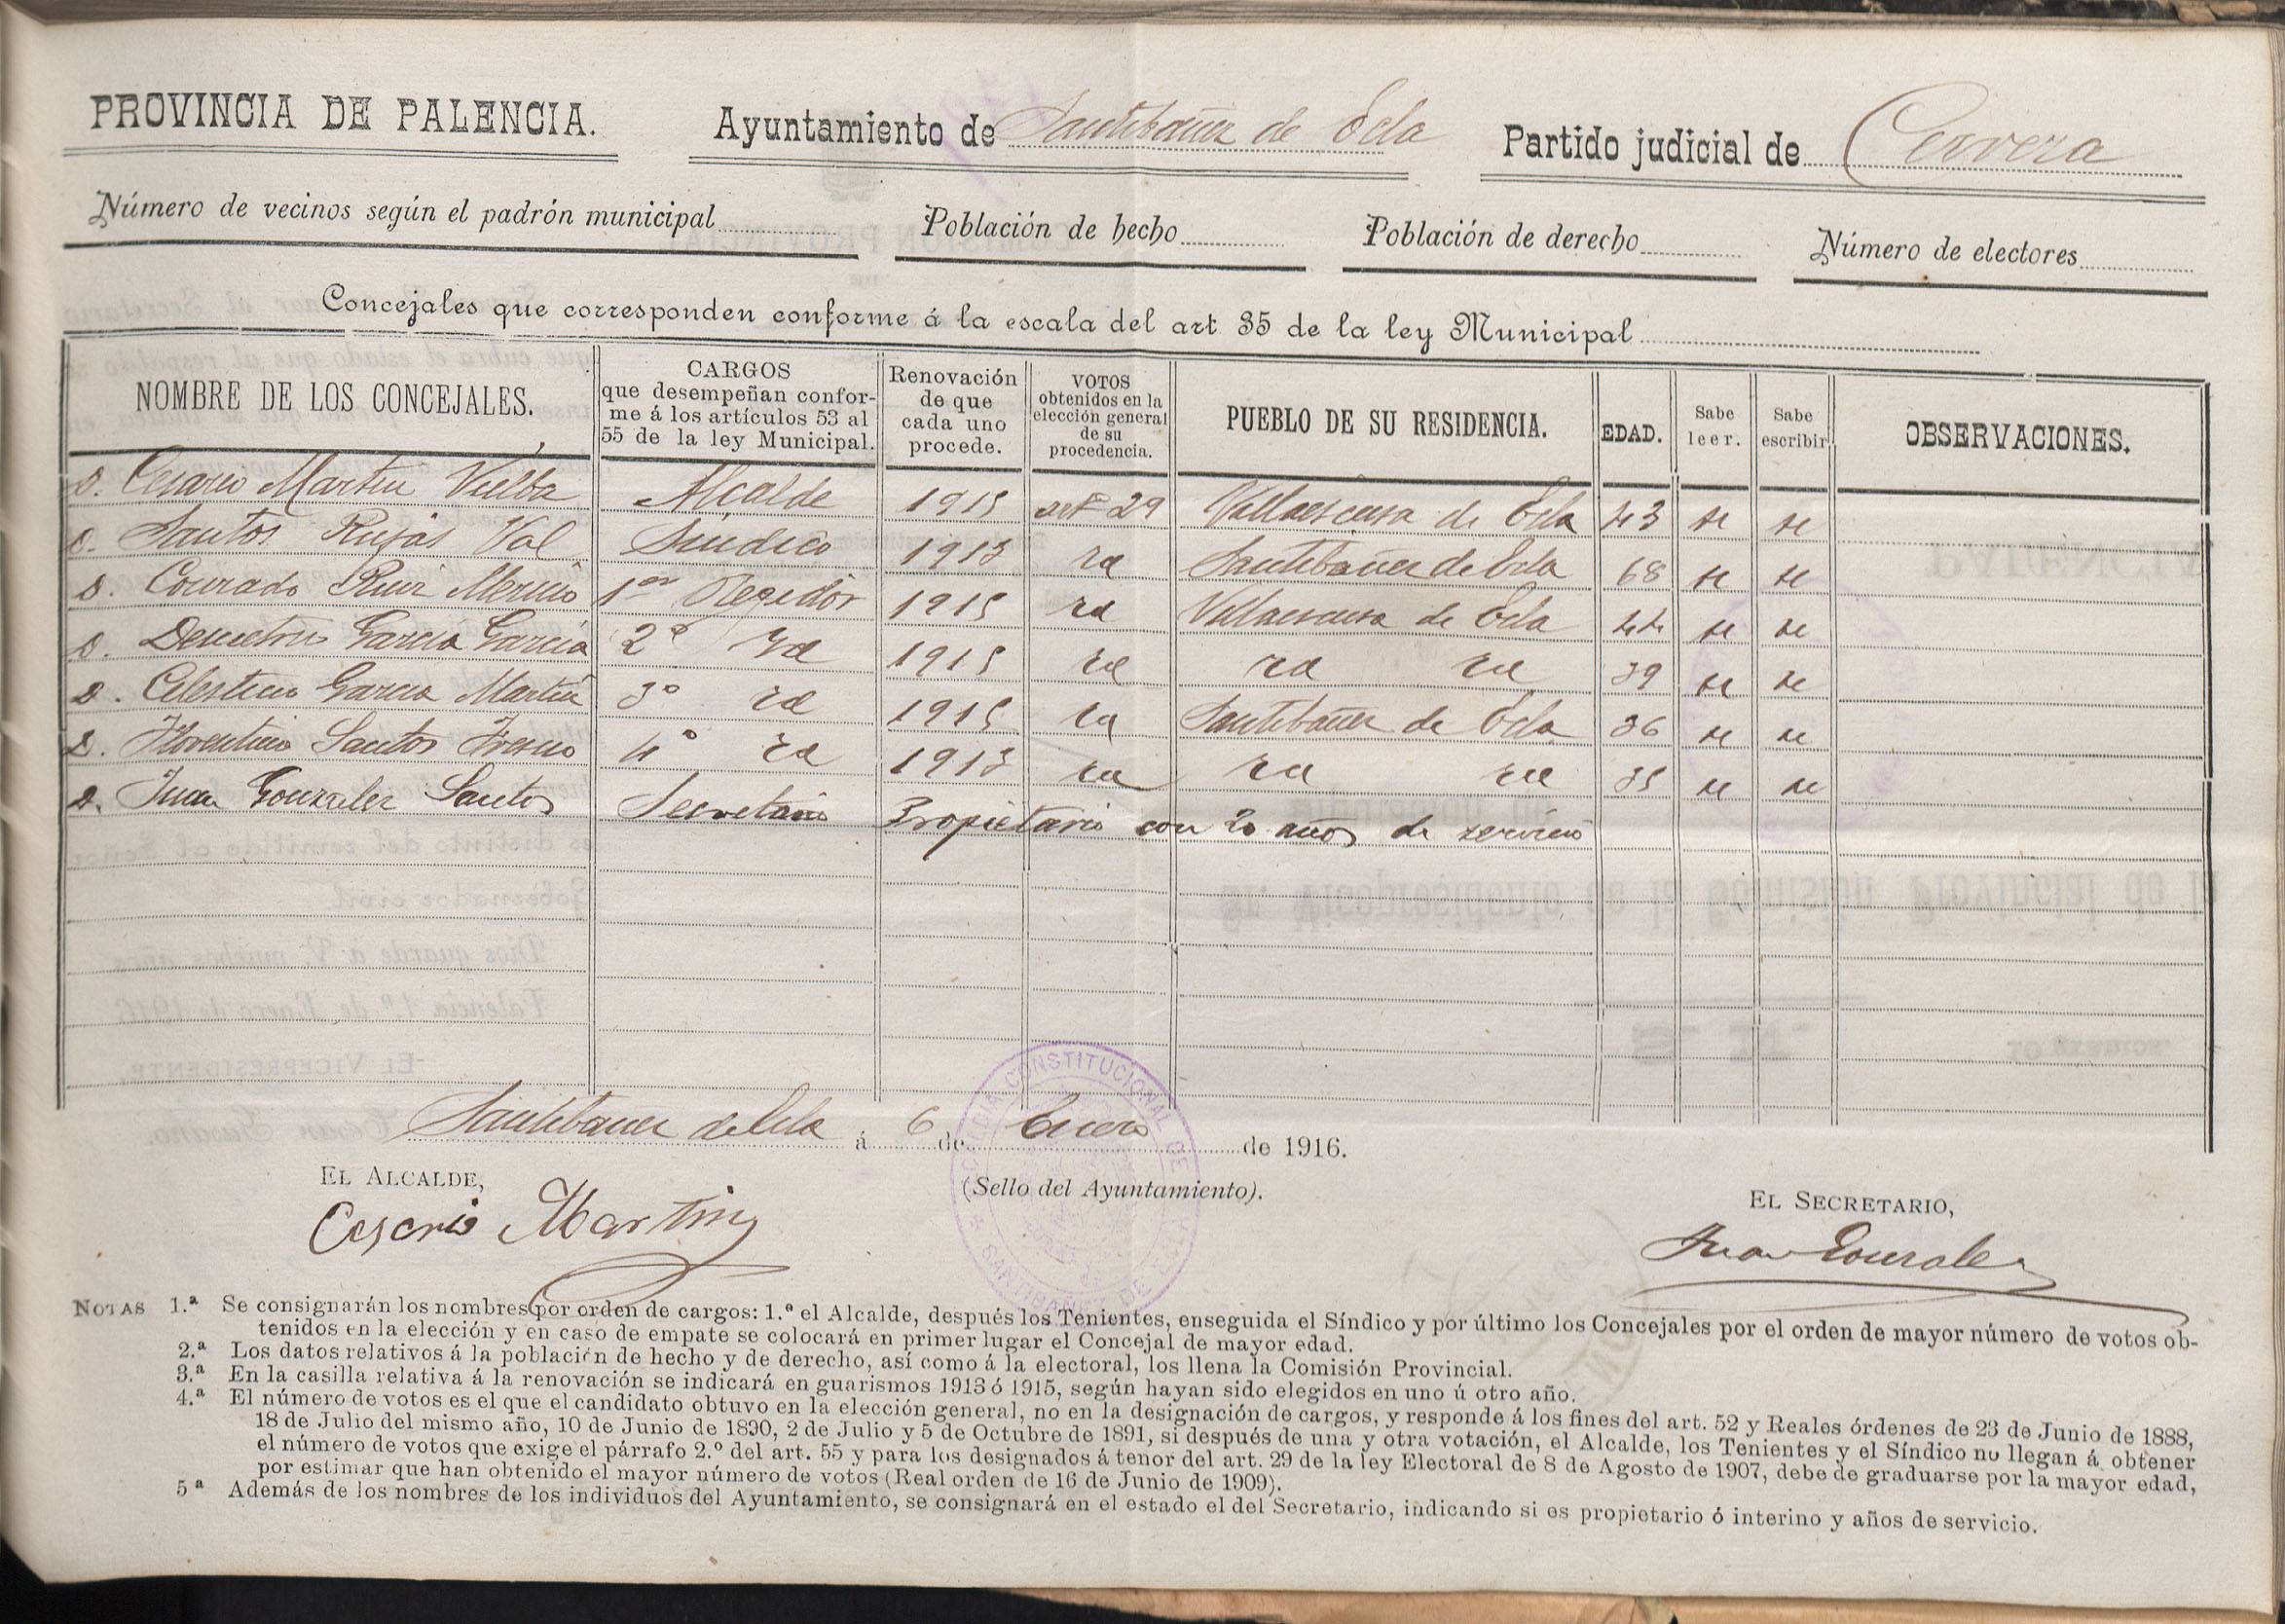 PROVINCIA DE PALENCIA. Ayuntamiento de Santibañez de Ecla Partido judicial de Cervera
Número de vecinos según el padrón municipal Población de hecho Población de derecho Número de electores
Concejales que corresponden conforme á la escala del art 35 de la ley Municipal
NOMBRE DE LOS CONCEJALES. CARGOS que desempeñan conforme á los artículos 53 al 55 de la ley Municipal. Renovación de que cada uno procede. VOTOS obtenidos en la elección general de su procedencia. PUEBLO DE SU RESIDENCIA. EDAD. Sabe leer. Sabe escribir OBSERVACIONES.
D. Cesareo Martin Vielba Alcalde 1915 art 29 Villaescusa de Ecla 43 si si
D. Santos Val Sindico 1913 id Santibañez de Ecla 68 si si
D. Conrado Ruiz Merino 1er Regidor 1915 id Villaescusa de Ecla 44 si si
D. Demetrio Garcia Garcia 2º id 1915 id id id 39 si si
D. Celestino Garcia Martin 3º id 1915 id Santibañez de Ecla 36 si si
D. Florentino Santos Fresno 4º id 1913 id id id 35 si si
D. Juan Gonzalez Santos Secretario Propietario con 20 años de servicio
Santibañez de Ecla á 6 de Enero de 1916.
EL ALCALDE, (Sello del Ayuntamiento). EL SECRETARIO,
Cesareo Martin Juan Gonzalez
ALCALDIA CONSTITUCIONAL DE SANTIBAÑEZ DE ECLA
NOTAS 1.ª Se consignarán los nombres por orden de cargos: 1.º el Alcalde, después los Tenientes, enseguida el Síndico y por último los Concejales por el orden de mayor número de votos ob-
tenidos en la elección y en caso de empate se colocará en primer lugar el Concejal de mayor edad.
2.ª Los datos relativos á la población de hecho y de derecho, así como á la electoral, los llena la Comisión Provincial.
3.ª En la casilla relativa á la renovación se indicará en guarismos 1913 ó 1915, según hayan sido elegidos en uno ú otro año.
4.ª El número de votos es el que el candidato obtuvo en la elección general, no en la designación de cargos, y responde á los fines del art. 52 y Reales órdenes de 23 de Junio de 1888,
18 de Julio del mismo año, 10 de Junio de 1890, 2 de Julio y 5 de Octubre de 1891, si después de una y otra votación, el Alcalde, los Tenientes y el Síndico no llegan á obtener
el número de votos que exige el párrafo 2.º del art. 55 y para los designados á tenor del art. 29 de la ley Electoral de 8 de Agosto de 1907, debe de graduarse por la mayor edad,
por estimar que han obtenido el mayor número de votos (Real orden de 16 de Junio de 1909).
5ª Además de los nombres de los individuos del Ayuntamiento, se consignará en el estado el del Secretario, indicando si es propietario ó interino y años de servicio.